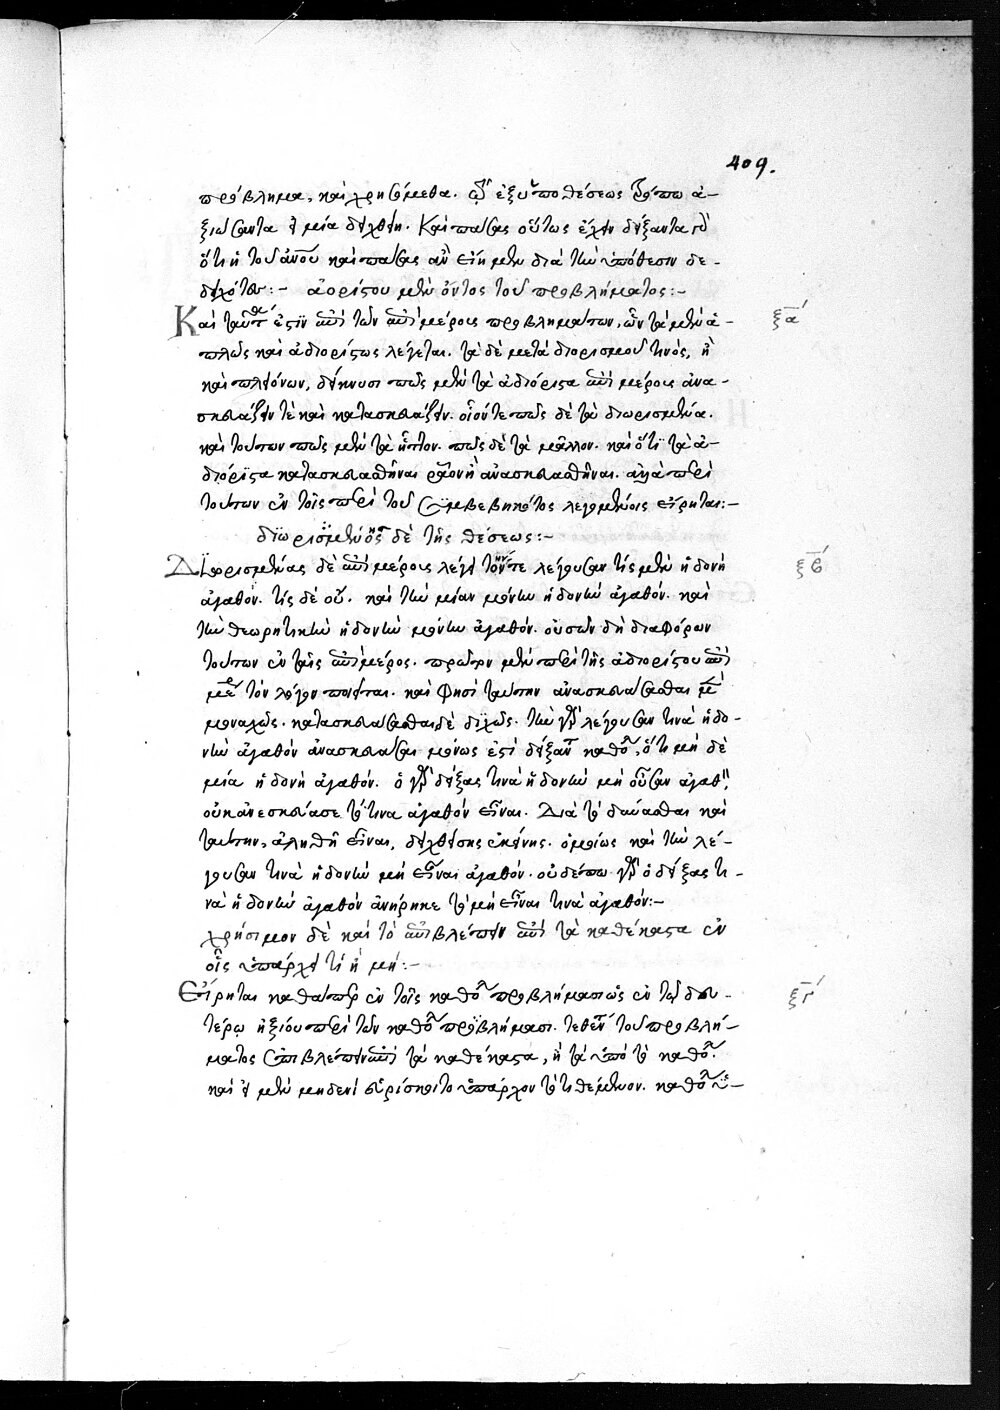 409.
πρόβλημα, καὶ χρησόμεθα. τῷ ἐξ ὑποθέσεως τρόπῳ ἀ-
ξιώσαντα εἰ μία δειχθείη. καὶ πάσας οὕτως ἔχειν δείξαντα γὰρ
ὅτι ἡ τοῦ ἀνθρώπου καὶ πάσας ἂν εἴημεν διὰ τὴν ὑπόθεσιν δε-
δειχότες:- ἀορίστου μὲν ὄντος τοῦ προβλήματος:-
Καὶ ταῦτά ἐστιν ἐπὶ τῶν ἐπὶ μέρους προβλημάτων, ὧν τὰ μὲν ἁ- ξα
πλῶς καὶ ἀδιορίστως λέγεται. τὰ δὲ μετὰ διορισμοῦ τινὸς, ἢ
καὶ πλειόνων, δείκνυσι πῶς μὲν τὰ ἀδιόριστα ἐπὶ μέρους ἀνα-
σκευάζειν τε καὶ κατασκευάζειν. οἷόν τε πῶς δὲ τὰ διωρισμένα.
καὶ τούτων πῶς μὲν τὰ ἧττον. πῶς δὲ τὰ μᾶλλον. καὶ ὅτι τὰ ἀ-
διόριστα κατασκευασθῆναι ῥᾷον ἢ ἀνασκευασθῆναι. ἀλλὰ περὶ
τούτων ἐν τοῖς περὶ τοῦ συμβεβηκότος λεγομένοις εἴρηται:-
διωρισμένης δὲ τῆς θέσεως:-
Διωρισμένας δὲ ἐπὶ μέρους λέγει τήν τε λέγουσαν τὶς μὲν ἡδονὴ ξβ
ἀγαθόν. τὶς δὲ οὔ. καὶ τὴν μίαν μόνην ἡδονὴν ἀγαθόν. καὶ
τὴν θεωρητικὴν ἡδονὴν μόνην ἀγαθόν. οὐσῶν δὴ διαφόρων
τούτων ἐν ταῖς ἐπὶ μέρος. πρῶτον μὲν περὶ τῆς ἀδιορίστου ἐπὶ
μέρους τὸν λόγον ποιεῖται. καὶ φησὶ ταύτην ἀνασκευάσασθαι μὲν
μοναχῶς. κατασκευάσασθαι δὲ διχῶς. τὴν γὰρ λέγουσαν τινὰ ἡδο-
νὴν ἀγαθὸν ἀνασκευάσαι μόνως ἐστὶ δείξαντα καθόλου, ὅτι μηδε
μία ἡδονὴ ἀγαθόν. ὁ γὰρ δείξας τινὰ ἡδονὴν μὴ οὖσαν ἀγαθὴν,
οὐκ ἀνεσκεύασε τό τινα ἀγαθὸν εἶναι. Διὰ τὸ δύνασθαι καὶ
ταύτην, ἀληθῆ εἶναι, δειχθείσης ἐκείνης. ὁμοίως καὶ τὴν λέ-
γουσαν τινὰ ἡδονὴν μὴ εἶναι ἀγαθόν. οὐδέπω γὰρ ὁ δείξας τι-
νὰ ἡδονὴν ἀγαθὸν ἀνῄρηκε τὸ μὴ εἶναι τινὰ ἀγαθόν:-
χρήσιμον δὲ καὶ τὸ ἐπιβλέπειν ἐπὶ τὰ καθέκαστα ἐν
οἷς ὑπάρχει τὶ ἢ μή:-
Εἴρηται καθάπερ ἐν τοῖς καθόλου προβλήμασι ὡς ἐν τῷ δευ- ξγ
τέρῳ ἠξίου περὶ τῶν καθόλου προβλήμασι. τεθέντος τοῦ προβλή-
ματος ἐπιβλέπειν ἐπὶ τὰ καθέκαστα, ἢ τὰ ὑπὸ τὸ καθόλου.
καὶ εἰ μὲν μηδενὶ εὑρίσκοιτο ὑπάρχον τὸ τιθέμενον. καθόλου ὑ-